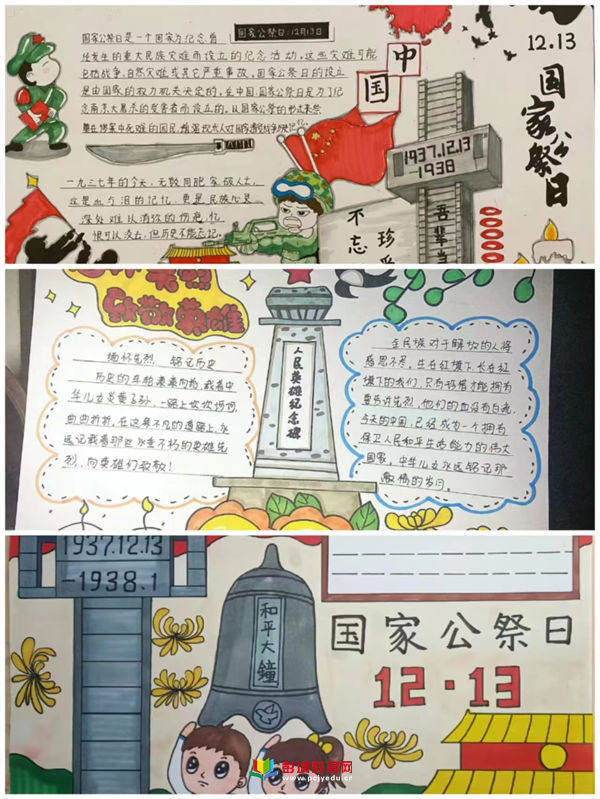 国家公祭日是一个国家为纪念曾
经发生的重大民族灾难而设立的纪念活动,这些灾难可能
包括战争,自然灾难或其它严重事故,国家公祭日的设立
是由国家的权力机关决定的,在中国,国家公祭日是为了纪
念南京大屠杀的受害者而设立的,从国家公祭的形式来祭
国家公祭日:12月13日
一九三七年的今天,无数同胞家破人亡
这是血与泪的记忆,更是民族心灵
深处难以消弥的伤疤,
恨可以淡去,但历史不能忘记。
中
国
1937.12.13
-1938
不忘
珍
吾辈当
12.13
国家公祭日
致敬英雄
缅怀先烈 铭记历史
历史的车轮滚滚向前,载着中
华儿女炎黄子孙,一路上坎坎坷坷,
曲曲折折,在这条不凡的道路上,永
远记载着那些永垂不朽的英雄先
烈,向英雄们致敬!
人民英雄纪念碑
全民族对于解放的人将
感恩不尽,生在红旗下,长在红
旗下的我们,只有将感才能拥有
要告许先烈,他们的血没有白流,
今天的中国,已经成为一个拥有
保卫人民和平生命能力的伟大
国家,中华儿女永远铭记那
激情的岁月。
1937.12.13
-1938.1
和平大鐘
国家公祭日
12·13
www.pcjyedu.cr